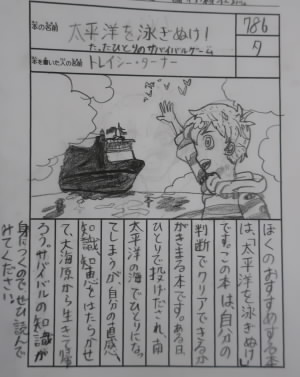 本の名前
太平洋を泳ぎぬけ!
たったひとりのサバイバルゲーム
786
タ
本を書いた人の名前
トレイシー・ターナー
ぼくのおすすめする本
は、「太平洋を泳ぎぬけ」
です。この本は、自分の
判断でクリアできるか
がきまる本です。ある日、
ひとりで投げだされ、南
太平洋の海でひとりにな。
てしまうが、自分の直感、
知識、知恵をはたらかせ
て、大海原から生きて帰
ろう。サバイバルの知識が
身につくのでぜひ読んで
みてください。